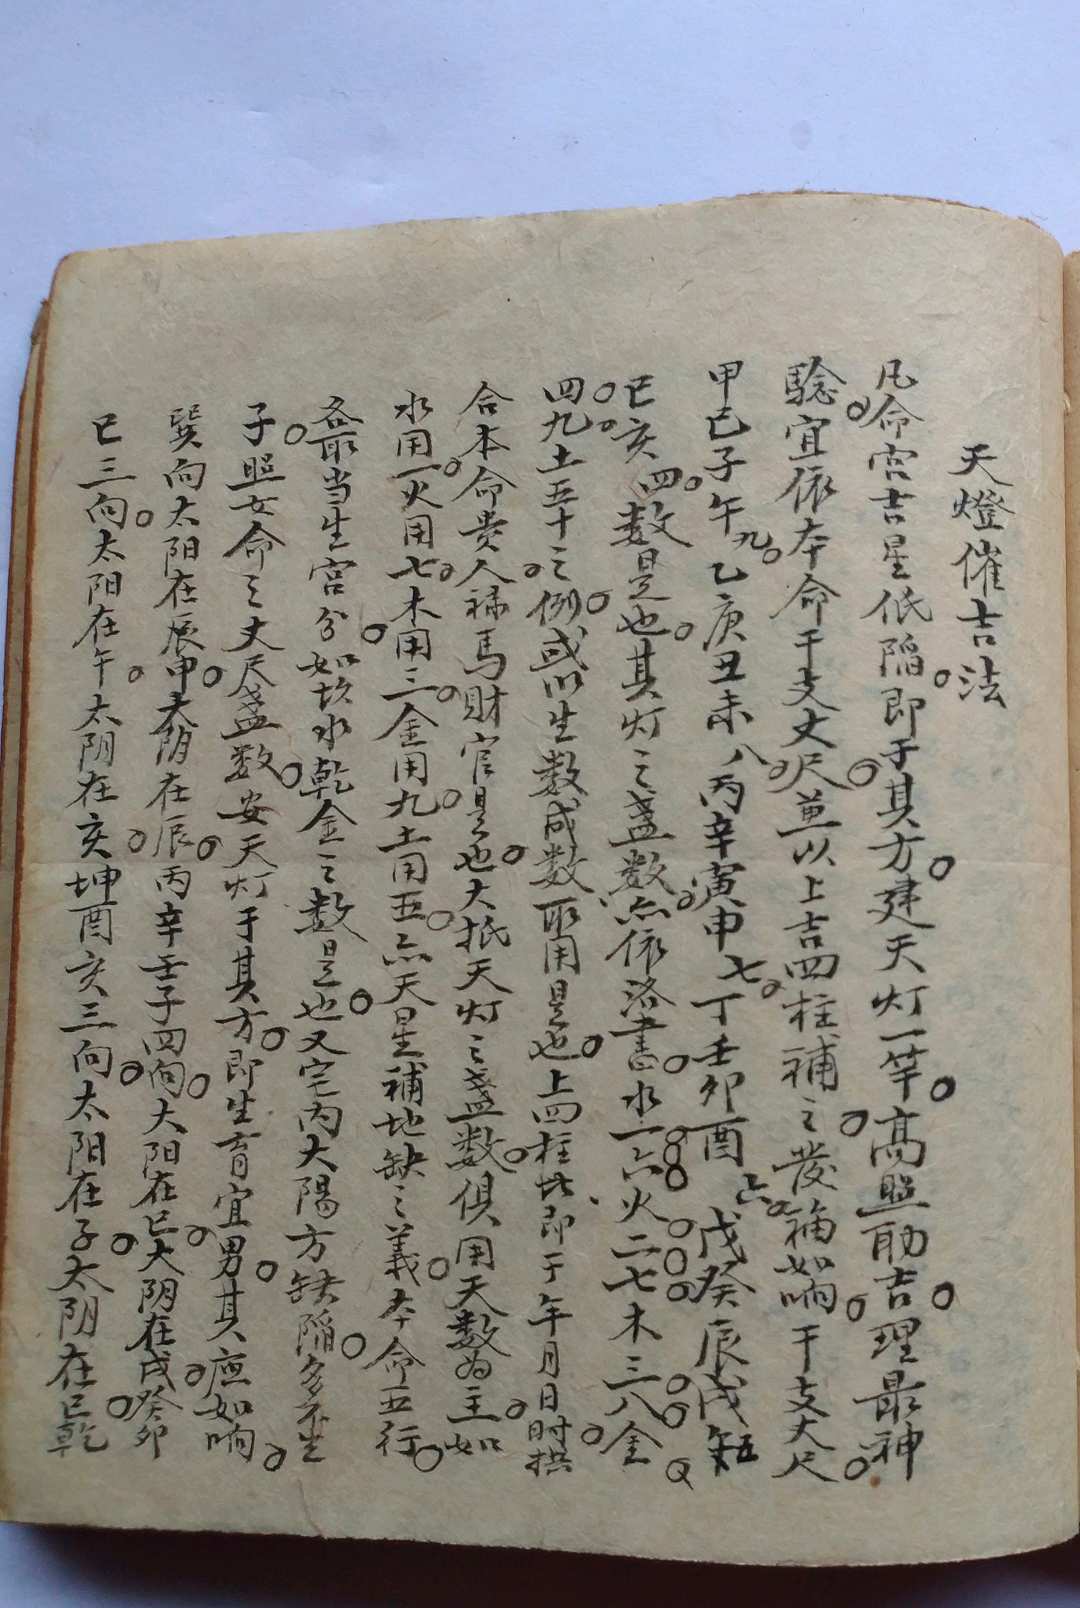 天燈催吉法
凡命宮吉星低陷。即于其方。建天灯一竿。高照助吉。理最神
騐。宜依本命干支丈尺。兼以上吉四柱補之。發福如响。干支丈尺。
甲己子午九。乙庚丑未八。丙辛寅申七。丁壬卯酉六。戊癸辰戌五
巳亥四。数是也。其灯之盞数。亦依洛書。水一六。火二七。木三八。金
四九。土五十之例。或以生数成数取用是也。上四柱此即于年月日时拱
合本命貴人祿馬財官是也。大抵天灯之盞数。俱用天数为主。如
水用一。火用七。木用三。金用九。土用五。亦天星補地缺之義。本命五行。
最当生宮分。如坎水乾金之数是也。又宅内太陽方缺陷。多不生
子。照女命之丈尺盞数。安天灯于其方。即生育宜男。其应如响。
巽向太阳在辰。甲太阴在辰。丙辛壬子四向。太阳在巳。太阴在戌。癸卯
巳三向。太阳在午。太阴在亥。坤酉亥三向。太阳在子。太阴在巳。乾